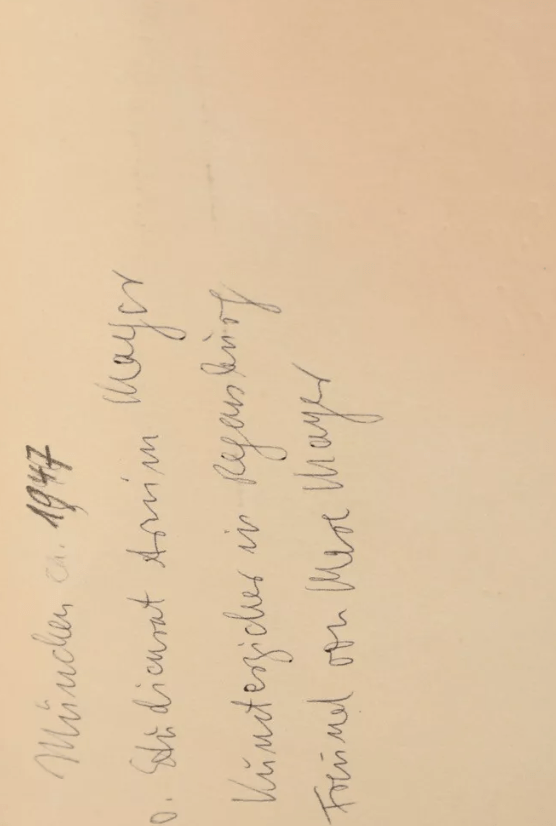 München ca. 1947
o. Studienrat Armin Mayer
Kunsterzieher in Regensburg
Freund von Mayer